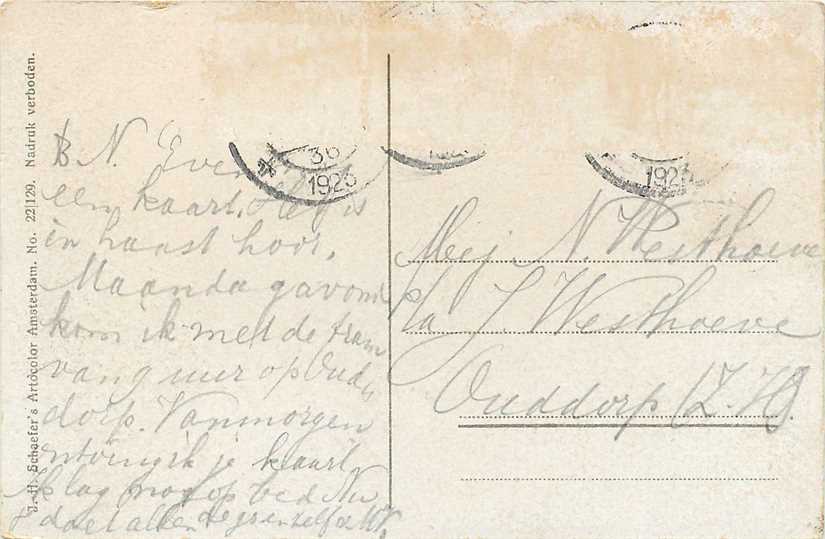 J. H. Schaefer's Artocolor Amsterdam. No. 22|129. Nadruk verboden.
36
1923
1923
B N. Even
een kaart. Het is
in haast hoor.
Maandagavond
kom ik met de tram
van 9 uur op Oud
dorp. Vanmorgen
ontving ik je kaart
Ik lag nog op bed Nu
doet allen de groeten
Mej. N. Westhoeve
p/a J. Westhoeve
Ouddorp (Z.H).